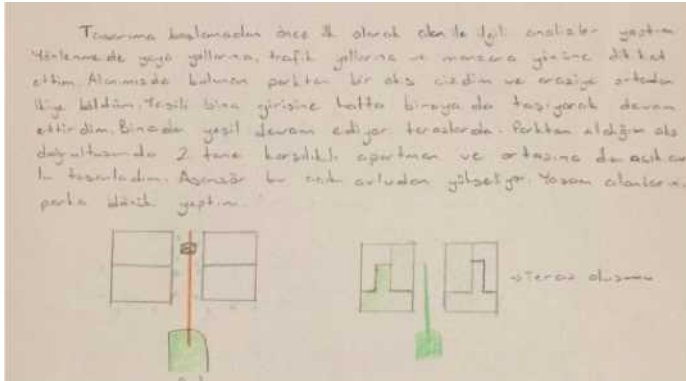 Tasarıma başlamadan önce ilk olarak alan ile ilgili analizler yaptım
Yönlenmede yaya yollarına, trafik yollarına ve manzara yönüne dikkat
ettim. Alanımızda bulunan parktan bir aks çizdim ve araziyi ortadan
ikiye böldüm. Yeşili bina girişine hatta binaya da taşıyarak devam
ettirdim. Binada yeşil devam ediyor teraslarda. Parktan aldığım aks
doğrultusunda 2 tane karşılıklı apartman ve ortasına da açık
tasarladım. Asansör bu açık avludan yükseliyor. Yaşam alanlarını
parka dönük yaptım.
→ Teras oluşumu